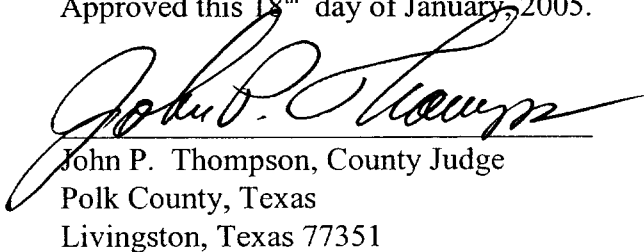 Approved this 18th day of January, 2005.
John P. Thomps
John P. Thompson, County Judge
Polk County, Texas
Livingston, Texas 77351